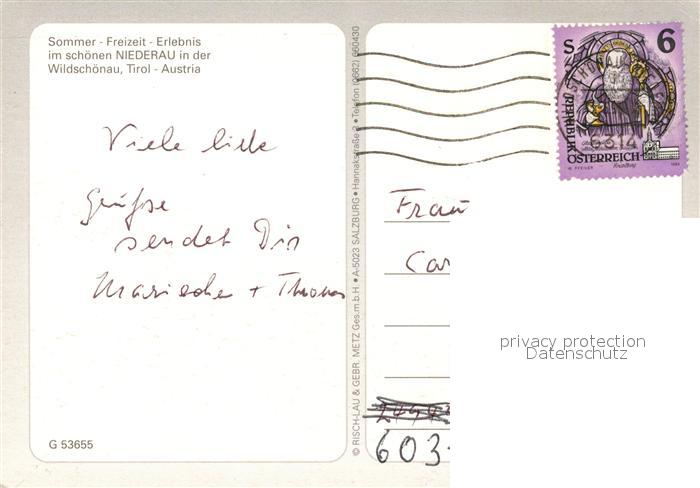 Sommer - Freizeit - Erlebnis
im schönen NIEDERAU in der
Wildschönau, Tirol - Austria
Viele liebe
Grüße
sendet Dir
+ Thomas
G 53655
© RISCH-LAU & GEBR. METZ Ges.m.b.H. • A-5023 SALZBURG • Hannakstraße 2 • Telefon (0662) 660430
S 6
REPUBLIK
ÖSTERREICH
Frau
Car
603
privacy protection
Datenschutz